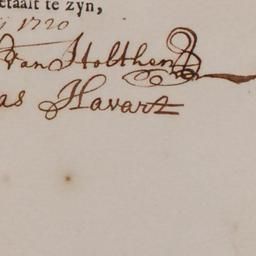 etaalt te zyn,
1720
van Holthen
as Havart